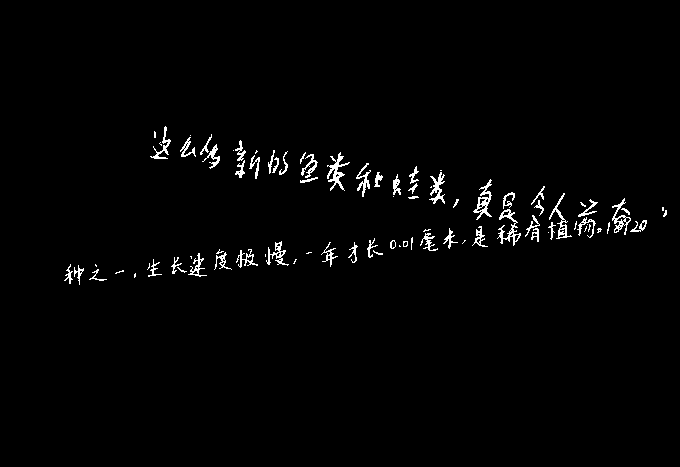 这么多新的鱼类和蛙类，真是令人兴奋
种之一，生长速度极慢，一年才长0.01毫米，是稀有植物。